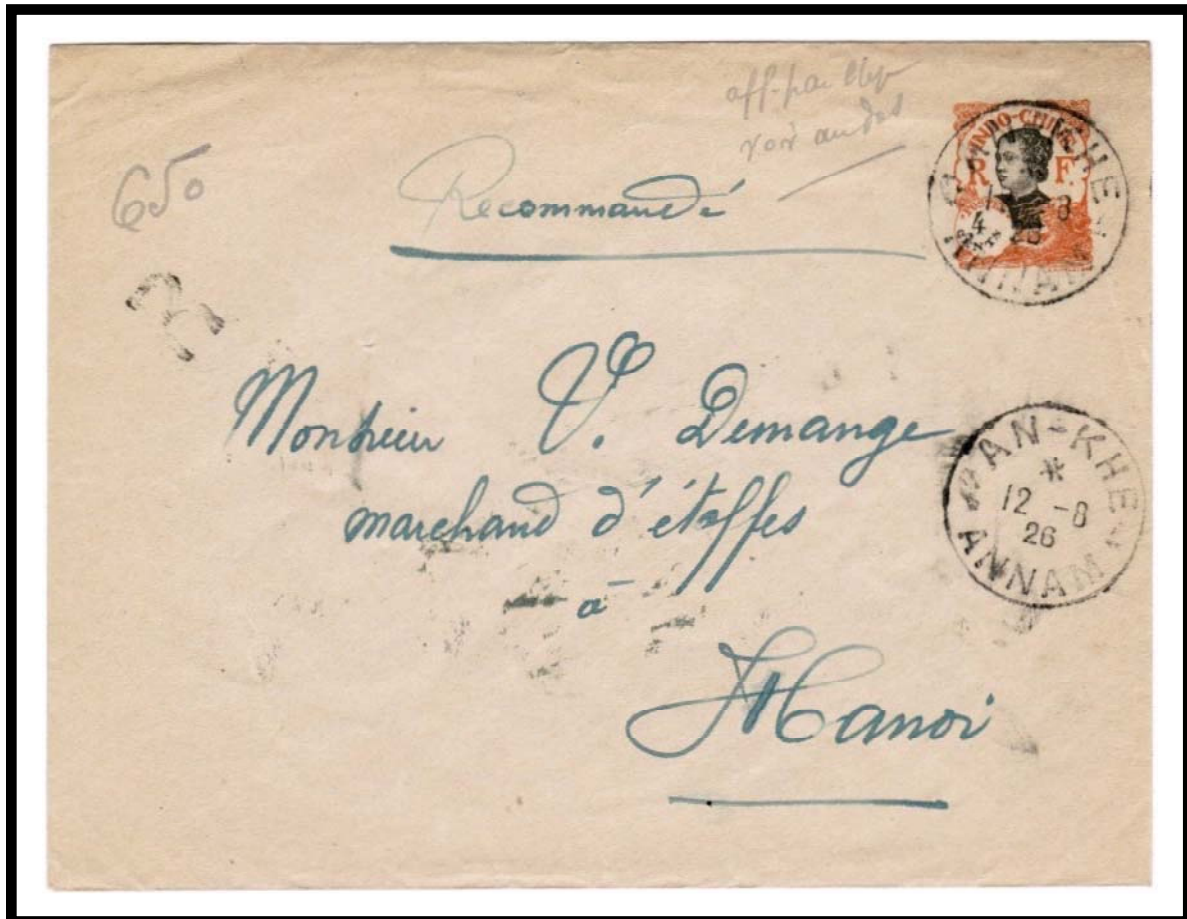 aff. par
voir au dos
650
Recommandé
INDO-CHINE
R F
4
CENTS
AN-KHE
ANNAM
R
Monsieur V. Demange
marchand d'étoffes
à
Hanoi
AN-KHE
*
12 -8
26
ANNAM